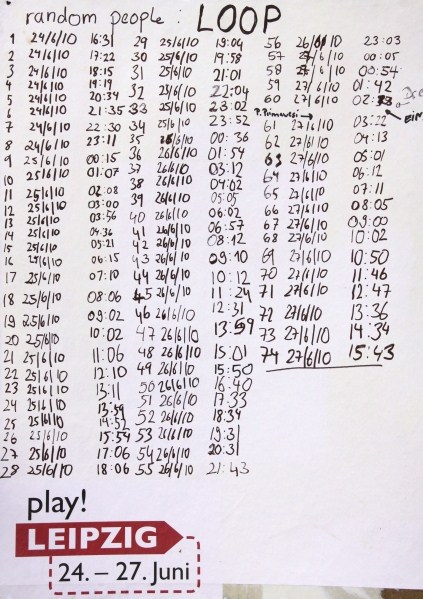 random people : LOOP
1 24/6/10 16:31
2 24/6/10 17:22
3 24/6/10 18:15
4 24/6/10 19:19
5 24/6/10 20:34
6 24/6/10 21:35
7 24/6/10 22:30
8 24/6/10 23:11
9 25/6/10 00:15
10 25/6/10 01:07
11 25/6/10 02:08
12 25/6/10 03:00
13 25/6/10 03:56
14 25/6/10 04:36
15 25/6/10 05:21
16 25/6/10 06:15
17 25/6/10 07:10
18 25/6/10 08:06
19 25/6/10 09:02
20 25/6/10 10:02
21 25/6/10 11:06
22 25/6/10 12:10
23 25/6/10 13:11
24 25/6/10 13:59
25 25/6/10 14:52
26 25/6/10 15:54
27 25/6/10 17:06
28 25/6/10 18:06
29 25/6/10 19:04
30 25/6/10 19:58
31 25/6/10 21:01
32 25/6/10 22:04
33 25/6/10 23:02
34 25/6/10 23:52
35 26/6/10 00:36
36 26/6/10 01:54
37 26/6/10 03:12
38 26/6/10 04:02
39 26/6/10 05:05
40 26/6/10 06:02
41 26/6/10 06:57
42 26/6/10 08:12
43 26/6/10 09:10
44 26/6/10 10:12
45 26/6/10 11:24
46 26/6/10 12:31
47 26/6/10 13:59
48 26/6/10 15:01
49 26/6/10 15:50
50 26/6/10 16:40
51 26/6/10 17:33
52 26/6/10 18:34
53 26/6/10 19:31
54 26/6/10 20:31
55 26/6/10 21:43
56 26/6/10 23:03
57 27/6/10 00:05
58 27/6/10 00:54
59 27/6/10 01:42
60 27/6/10 02:33
61 27/6/10 03:22
62 27/6/10 04:13
63 27/6/10 05:01
64 27/6/10 06:12
65 27/6/10 07:11
66 27/6/10 08:05
67 27/6/10 09:00
68 27/6/10 10:02
69 27/6/10 10:50
70 27/6/10 11:46
71 27/6/10 12:47
72 27/6/10 13:36
73 27/6/10 14:34
74 27/6/10 15:43
play!
LEIPZIG
24. – 27. Juni